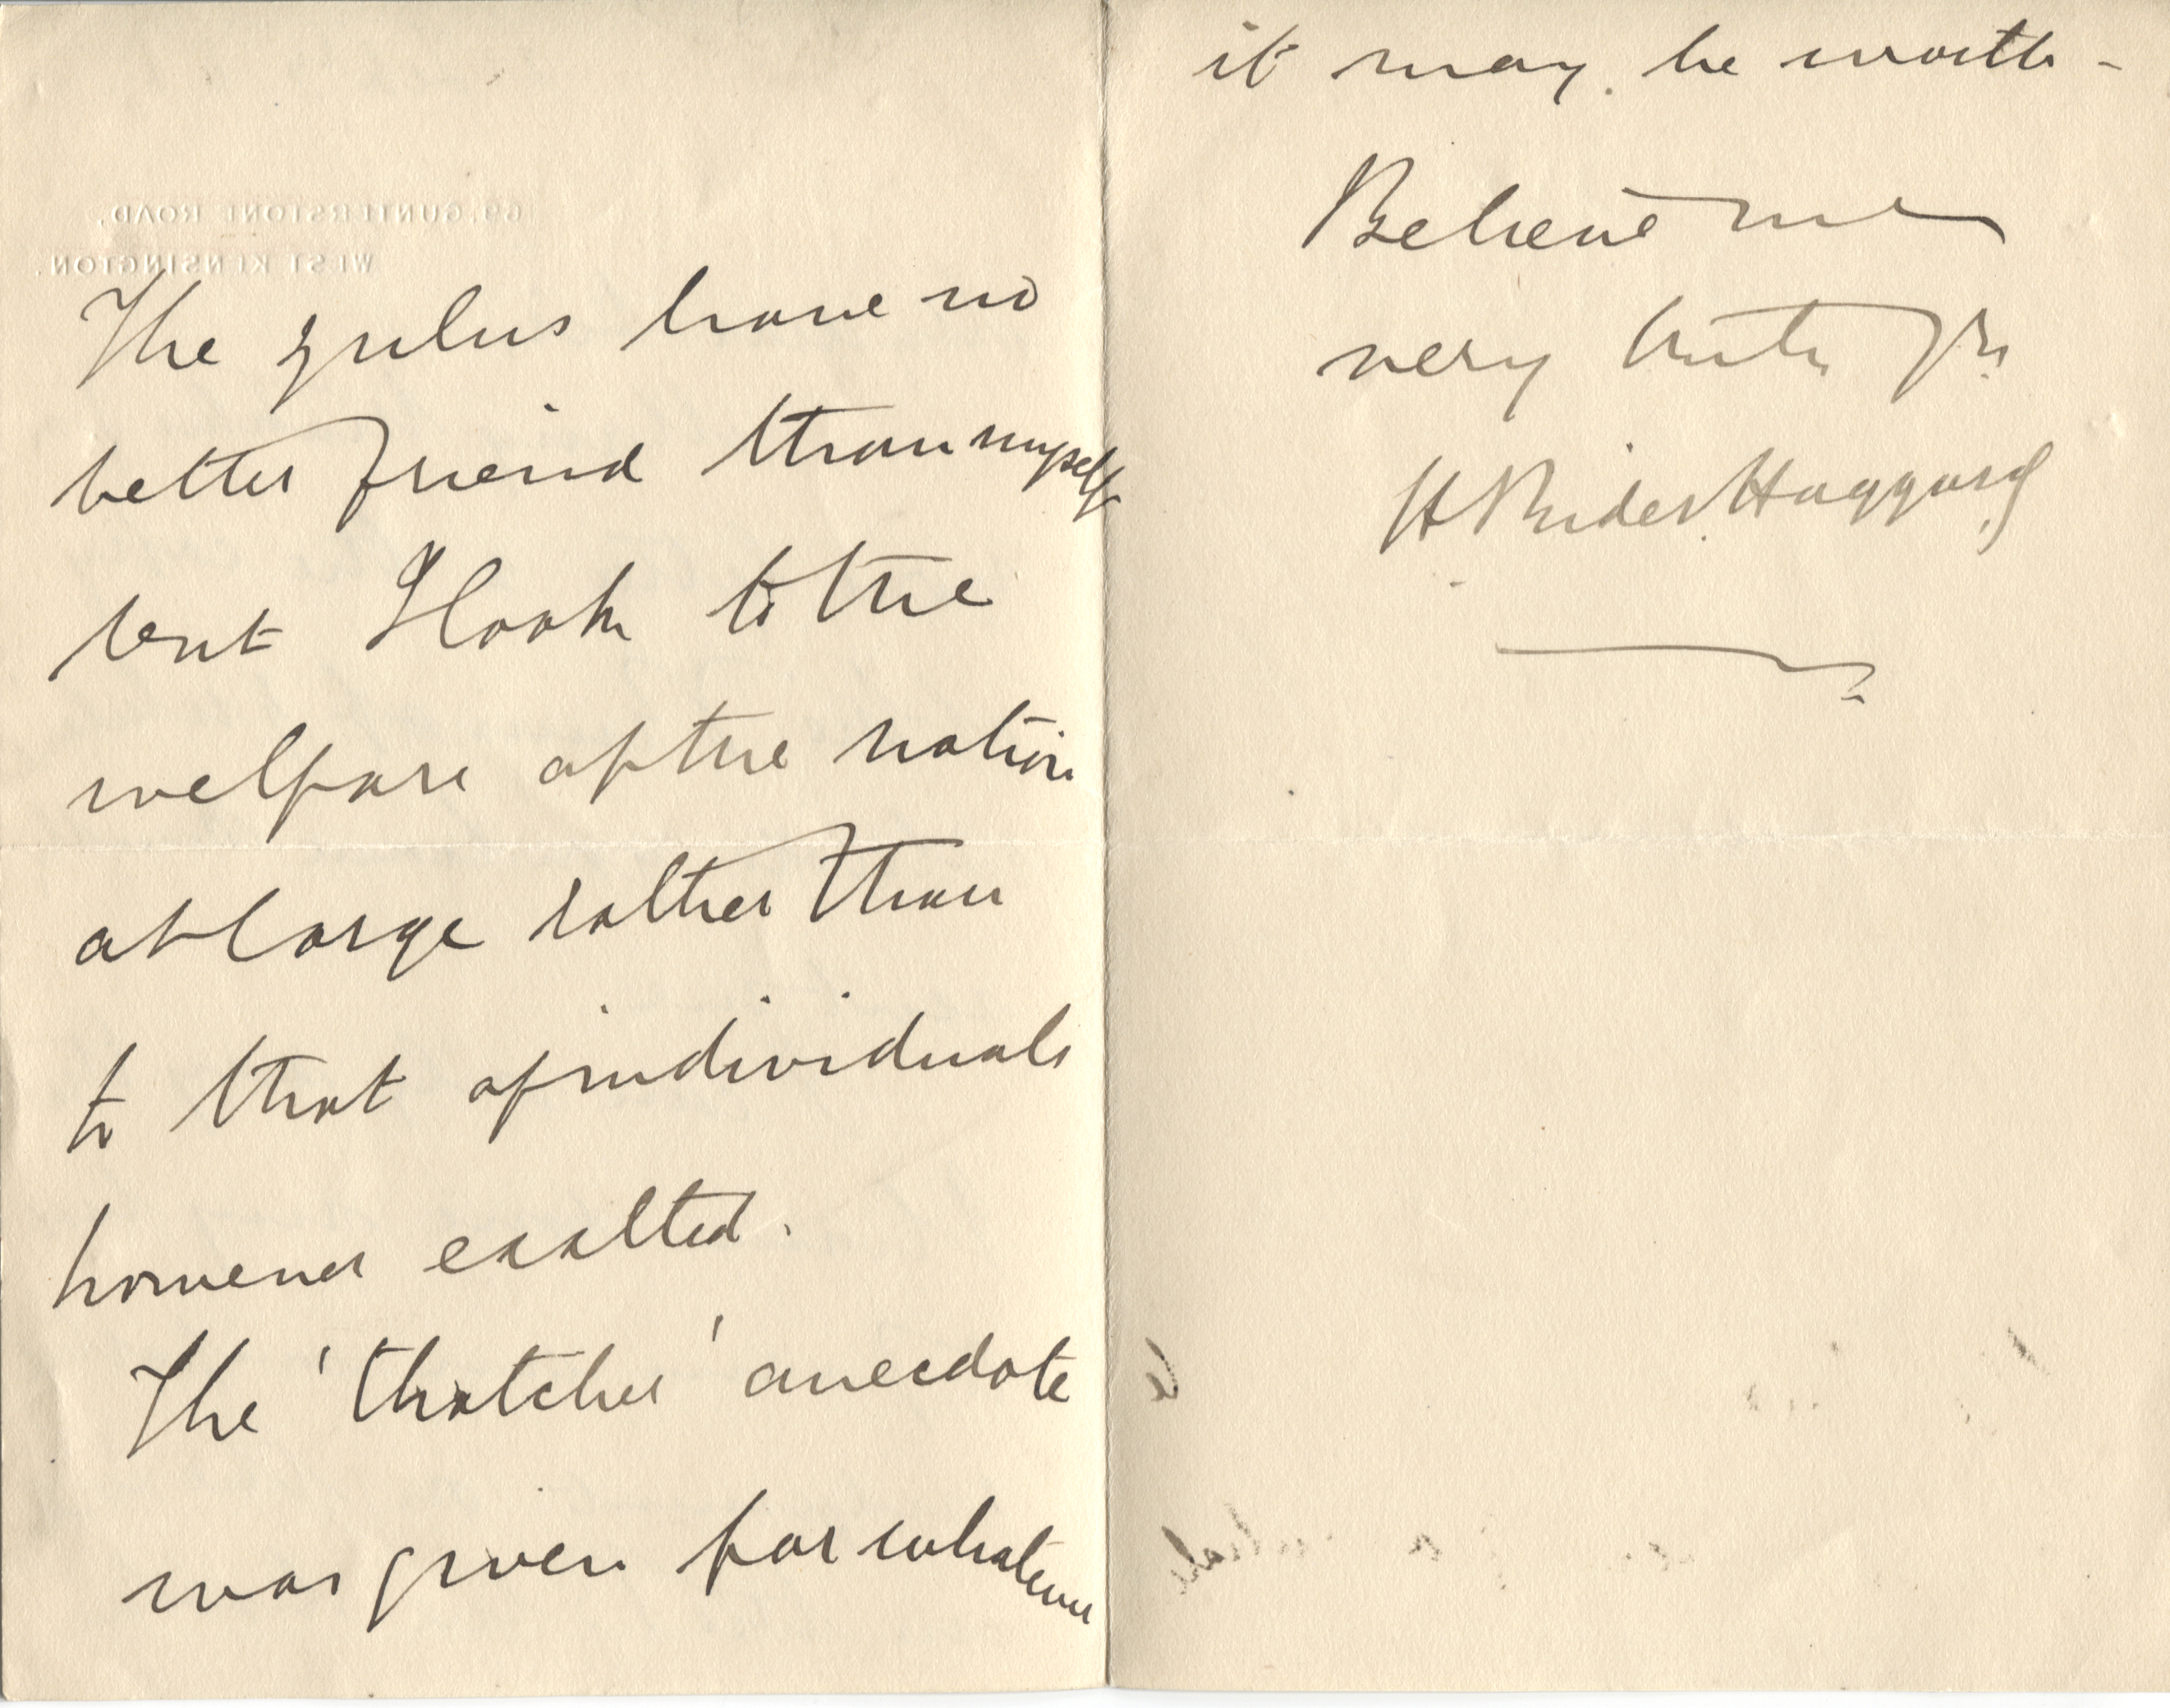 69, GUNTERSTONE ROAD,
WEST KENSINGTON.
The Zulus have no
better friend than myself
but I look to the
welfare of the nation
at large rather than
to that of individuals
however exalted.
The 'thatcher' anecdote
was given for whatever
it may be worth -
Believe me
very truly yrs
H Rider Haggard